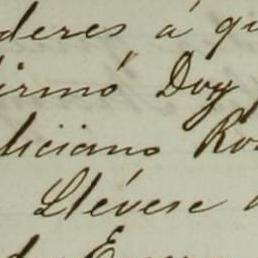 deres á qu
irmó Doy
liciano Ro
Llévese